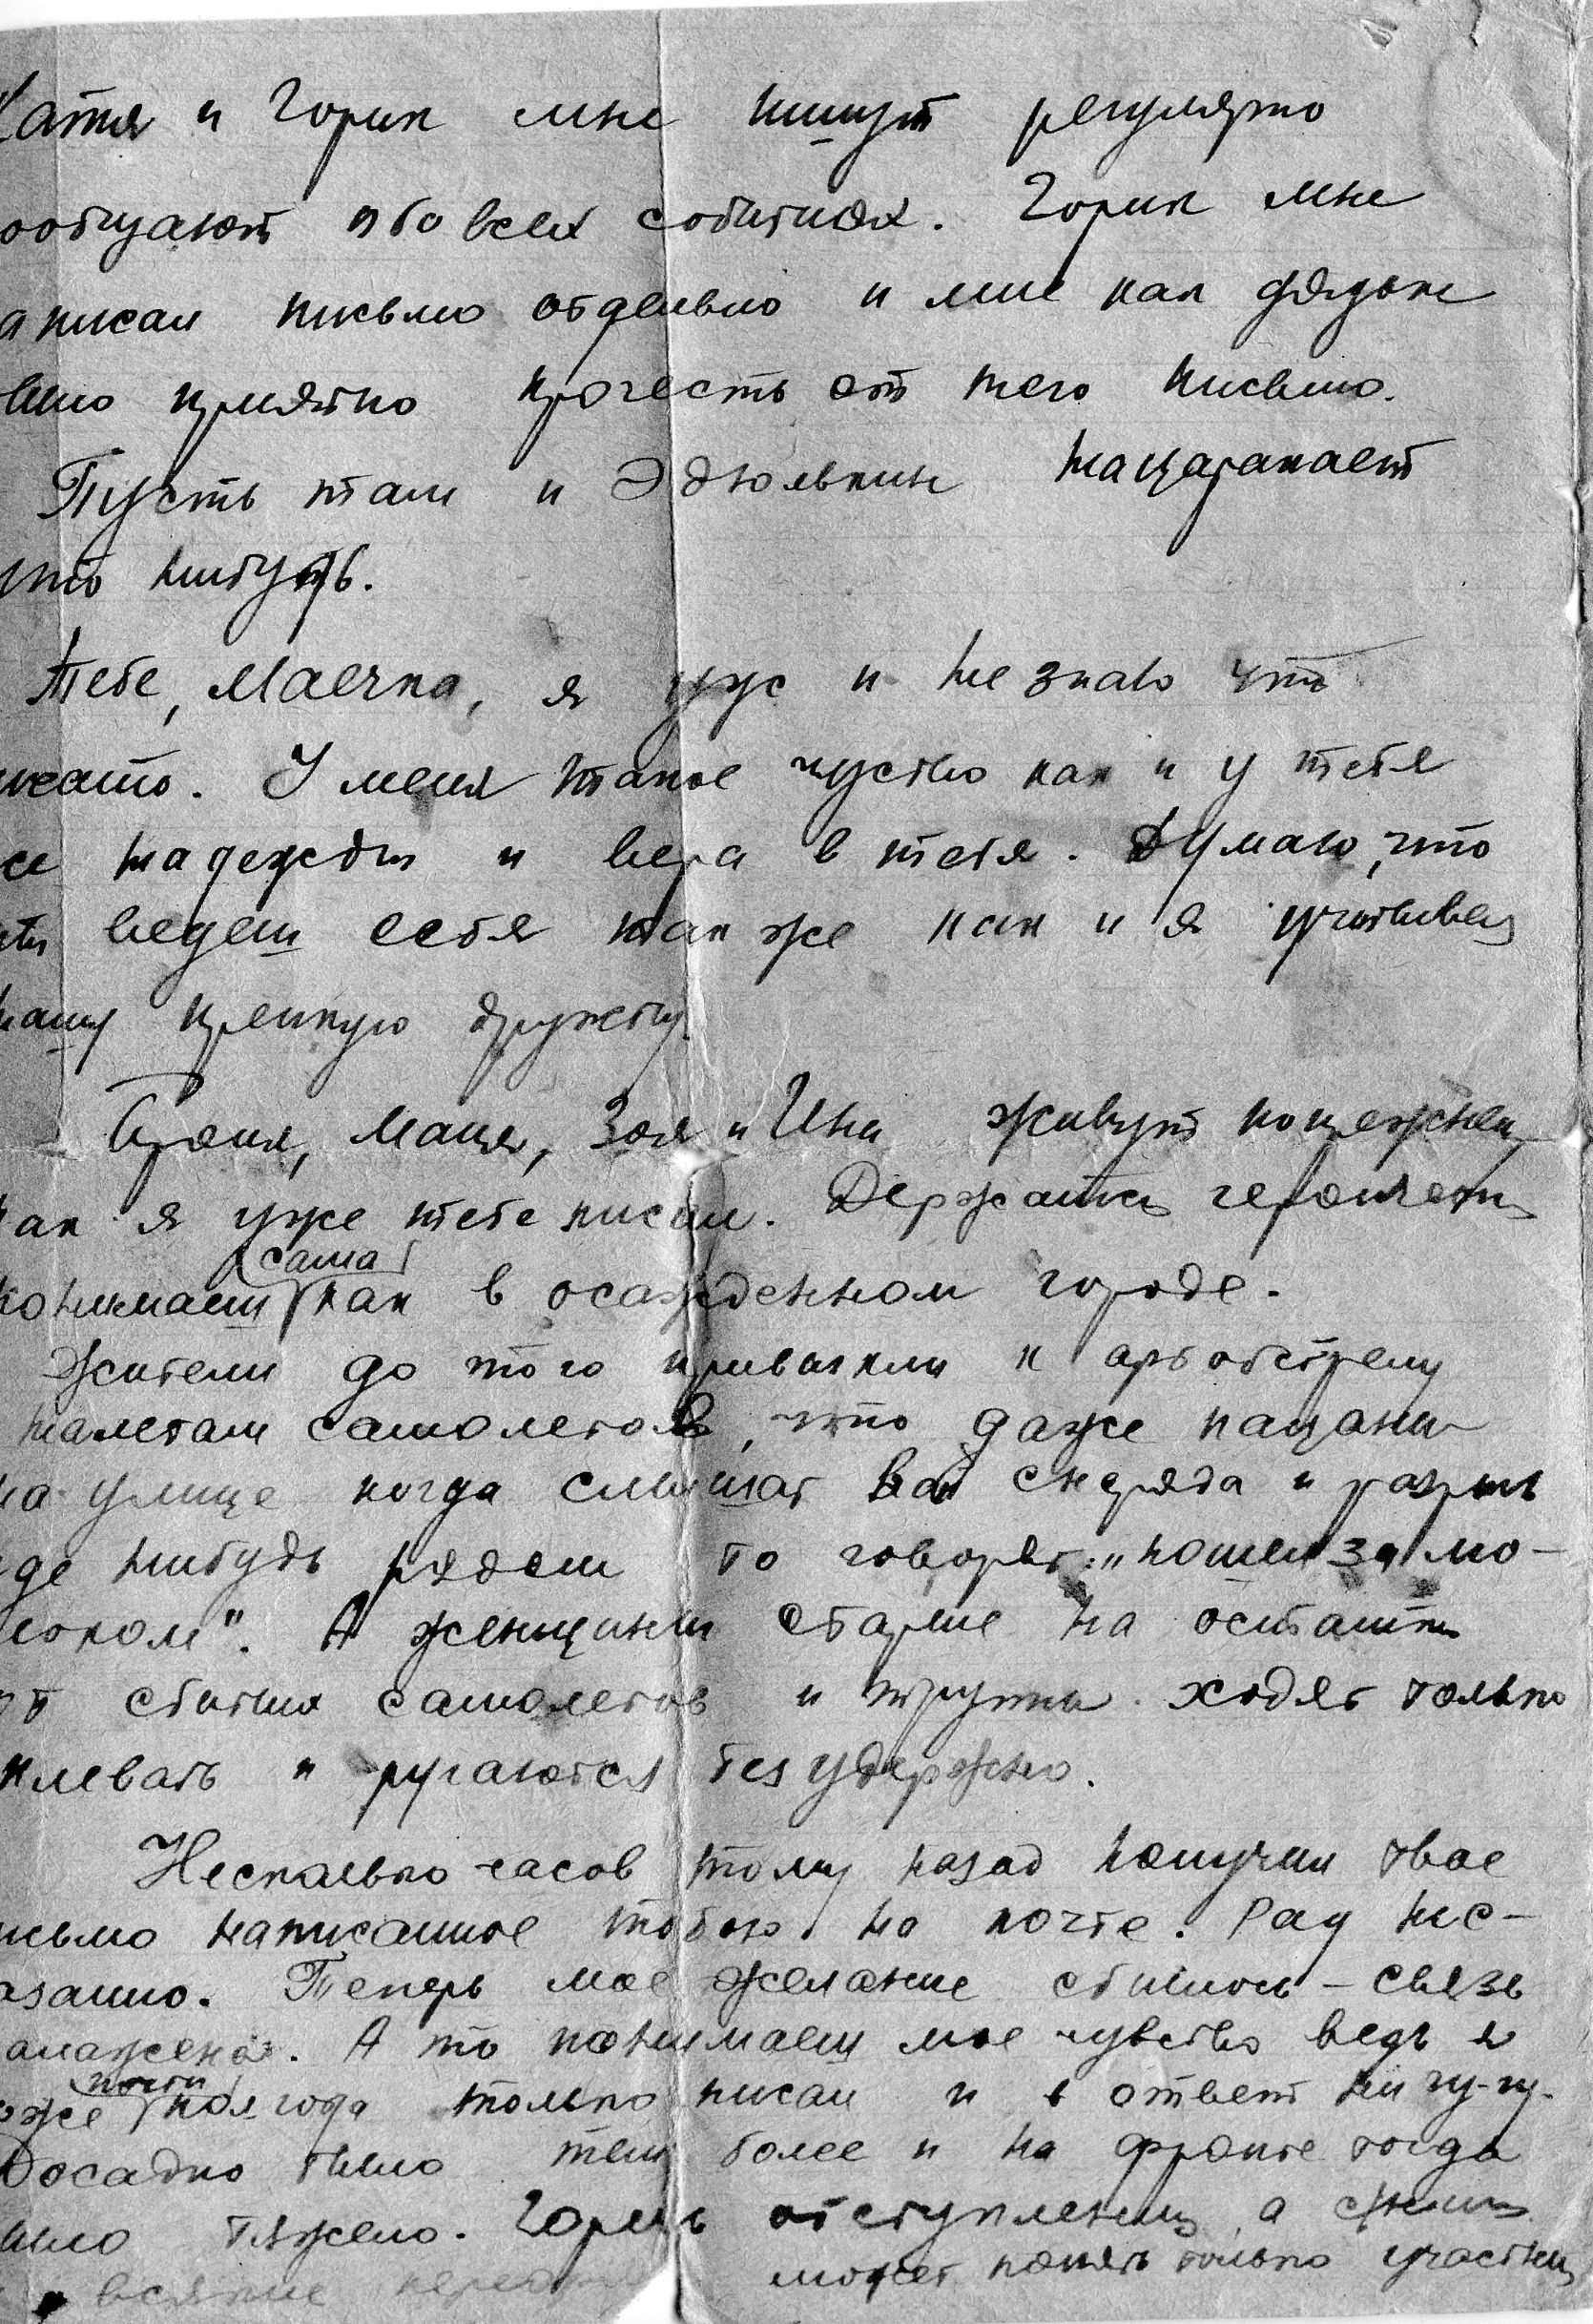 Катя и Горик мне пишут регулярно
ообщают обо всех событиях. Горик мне
аписал письмо отдельно и мне как дядьке
было приятно прочесть от него письмо.
Пусть там и Эдюлькин нацарапает
что нибудь.
Тебе, Маечка, я уж и не знаю что
писать. У меня такое чуство как и у тебя
се надежды и вера в тебя. Думаю, что
ты ведеш себя так же как и я учитывая
нашу крепкую дружбу.
Броня, Маня, Зоя и Ина живут попрежнему
как я уже тебе писал. Держатся героически
понимаеш сама как в осажденном городе.
Жители до того привыкли к артобстрелу
налетам самолетов, что даже пацаны
на улице когда слышат вой снаряда и разрыв
где нибудь рядом то говорят: „пошел за мо-
локом". А женщины старые на останки
от сбитых самолетов и трупы ходят только
плевать и ругаются безудержно.
Несколько часов тому назад получил твое
исьмо написанное тобою на почте. Рад нес-
азанно. Теперь мое желание сбылось – связь
алажена. А то понимаеш мое чувство ведь я
уже почти пол года только писал и в ответ ни гу-гу.
Досадно было тем более и на фронте тогда
было тяжело. Горечь отступления, а
может понять только участник
всякие